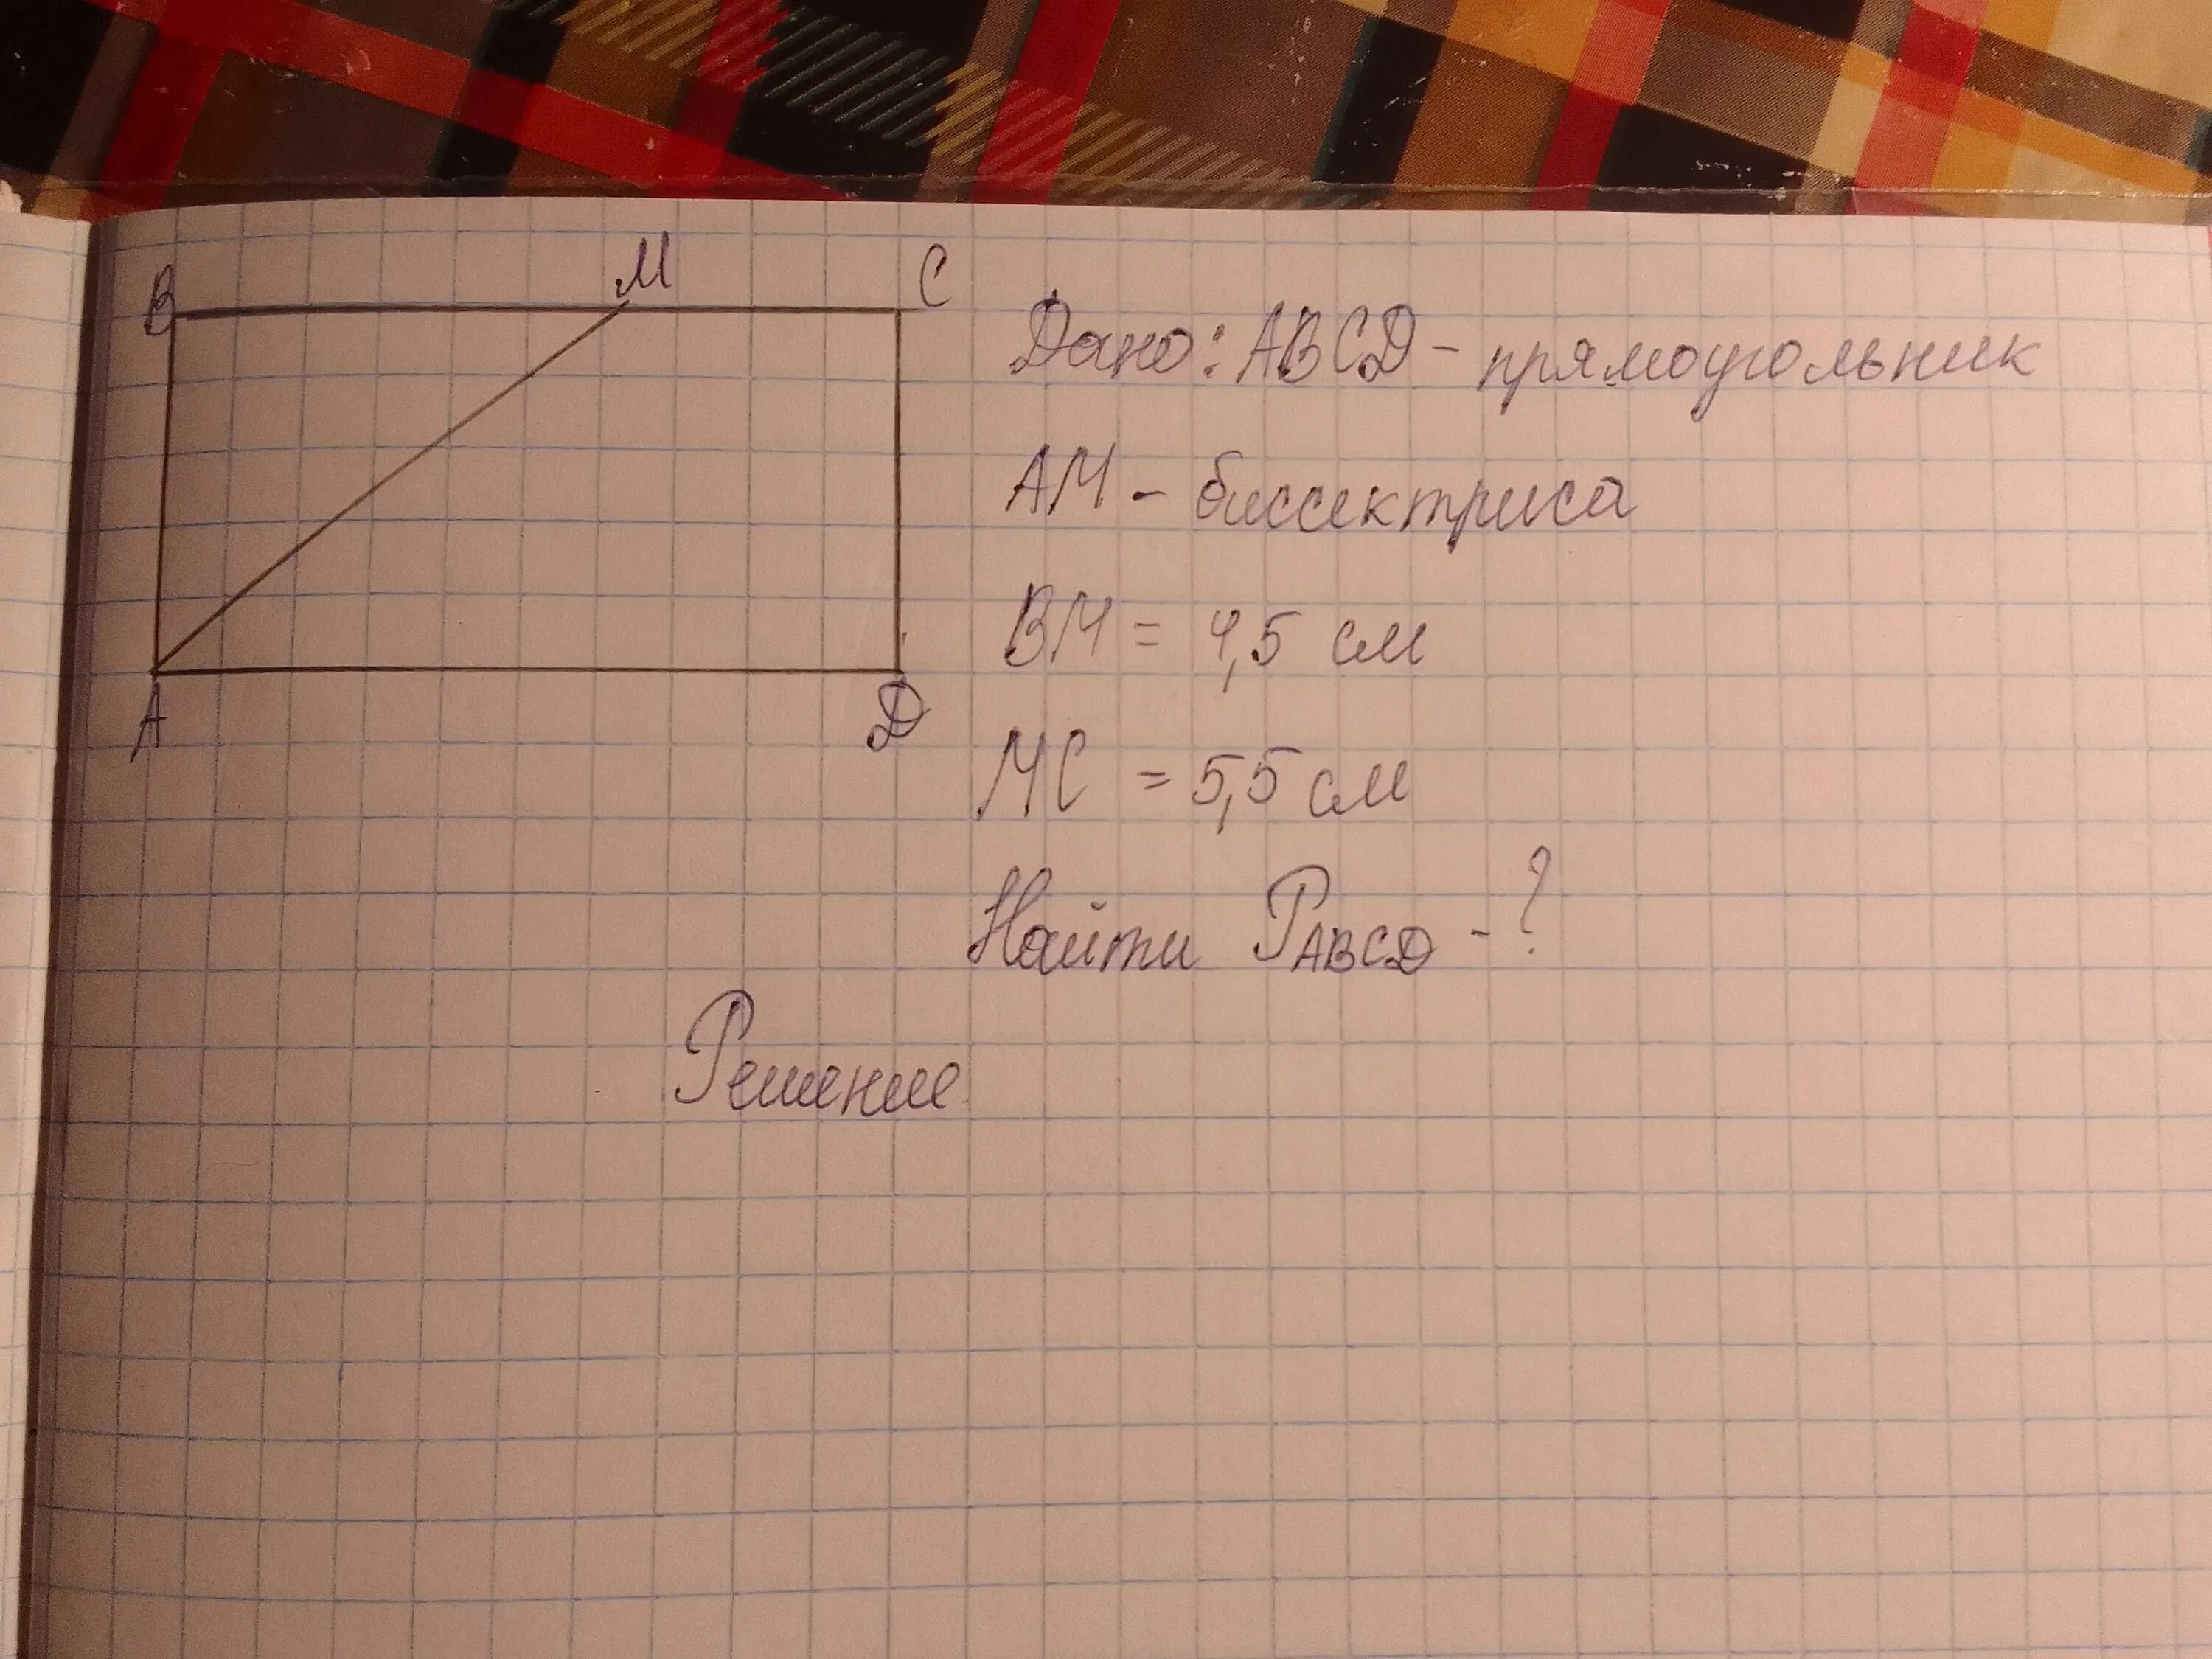 B M C
A D
Дано: ABCD - прямоугольник
AM - биссектриса
BM = 4,5 см
MC = 5,5 см
Найти PABCD - ?
Решение